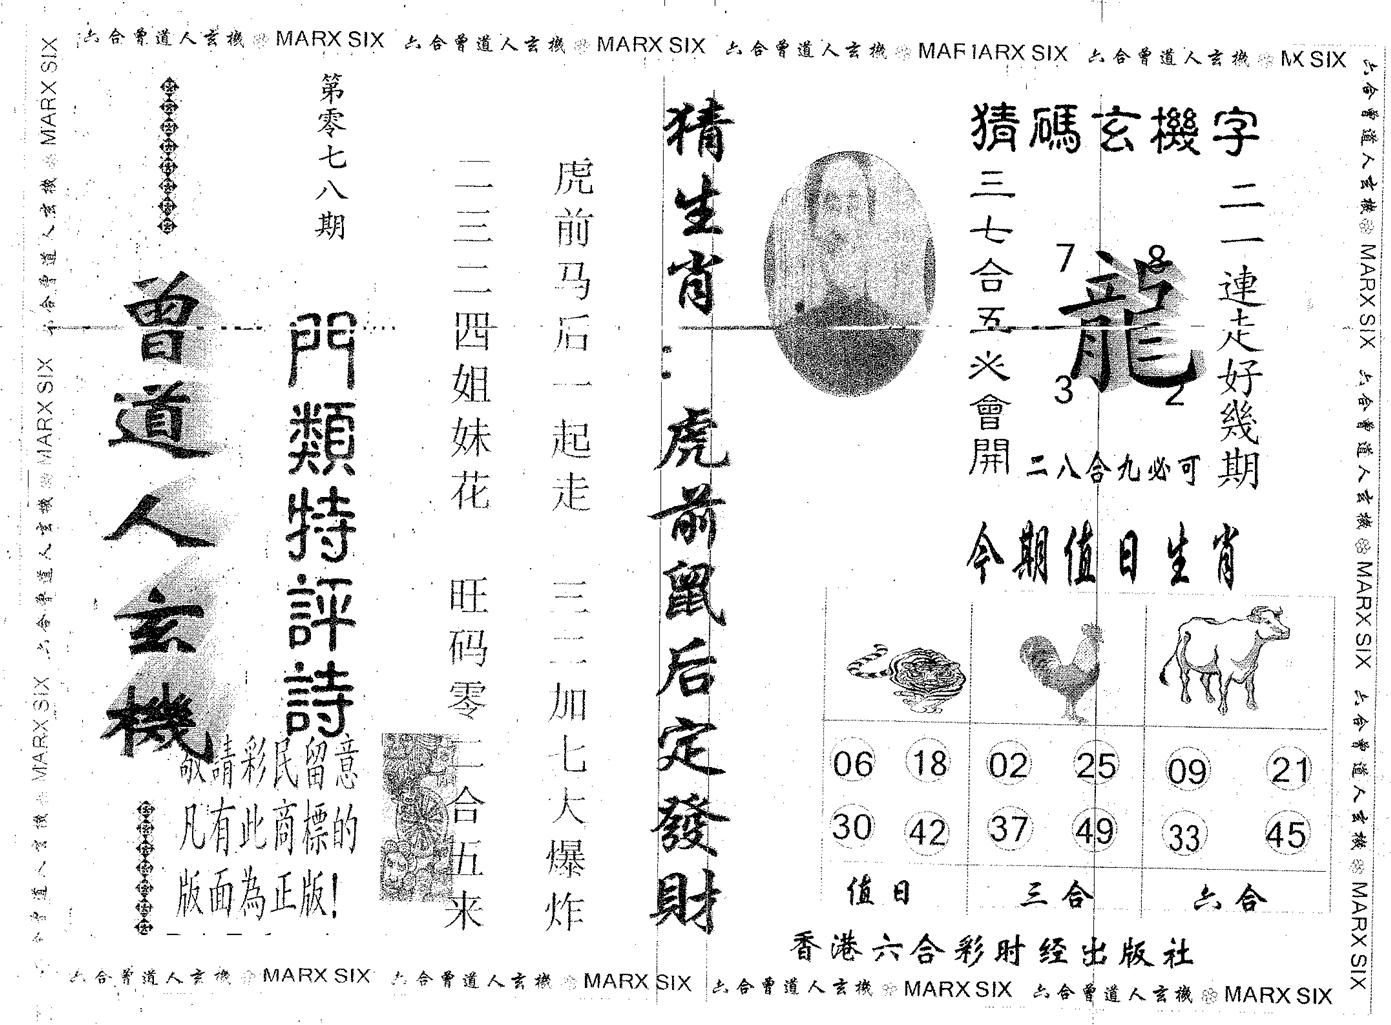 六合曾道人玄機 MARX SIX 六合曾道人玄機 MARX SIX 六合曾道人玄機 MAF1ARX SIX 六合曾道人玄機 MX SIX
六合曾道人玄機 MARX SIX 六合曾道人玄機 MARX SIX 六合曾道人玄機 MARX SIX
猜碼玄機字
二一連走好幾期
7
8
龍
3
2
二八合九必可
三七合五必會開
今期值日生肖
06 18 02 25 09 21
30 42 37 49 33 45
值日 三合 六合
香港六合彩时经出版社
猜生肖：虎前鼠后定發財
虎前马后一起走 三二加七大爆炸
二三二四姐妹花 旺码零二合五来
第零七八期
門類特評詩
曾道人玄機
敬請彩民留意
凡有此商標的
版面為正版!
六合曾道人玄機 MARX SIX 六合曾道人玄機 MARX SIX 六合曾道人玄機 MARX SIX
六合曾道人玄機 MARX SIX 六合曾道人玄機 MARX SIX 六合曾道人玄機 MARX SIX 六合曾道人玄機 MARX SIX